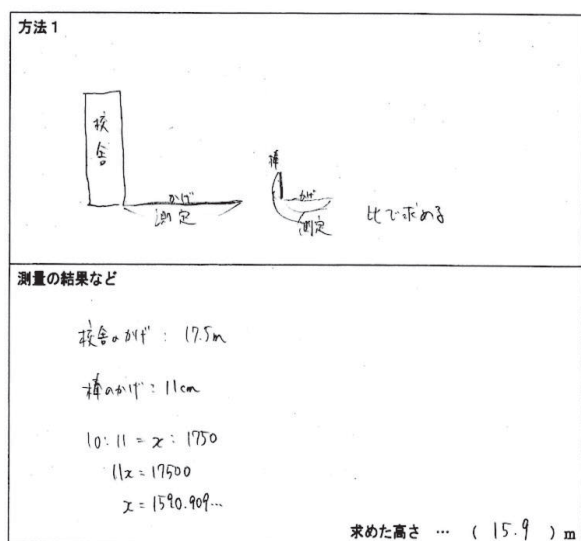 方法1
校舎
かげ
測定
棒
かげ
測定
比で求める
測量の結果など
校舎のかげ: 17.5m
棒のかげ: 11cm
10:11=x:1750
11x=17500
x=1590.909…
求めた高さ … ( 15.9 ) m